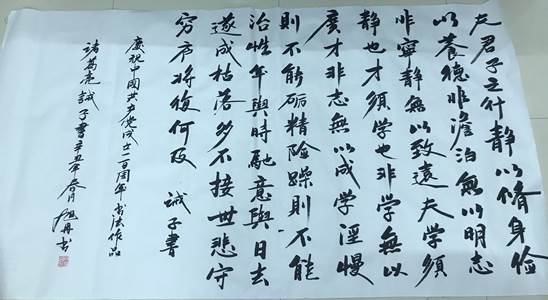 夫君子之行静以脩身俭
以養德非澹泊無以明志
非寧静無以致遠夫学須
静也才須学也非学無以
廣才非志無以成学淫慢
則不能砺精险躁則不能
治性年與時馳意與日去
遂成枯落多不接世悲守
穷庐將復何及 誡子書
慶祝中國共产党成立一百周年书法作品
諸葛亮誡子書辛丑年春月书